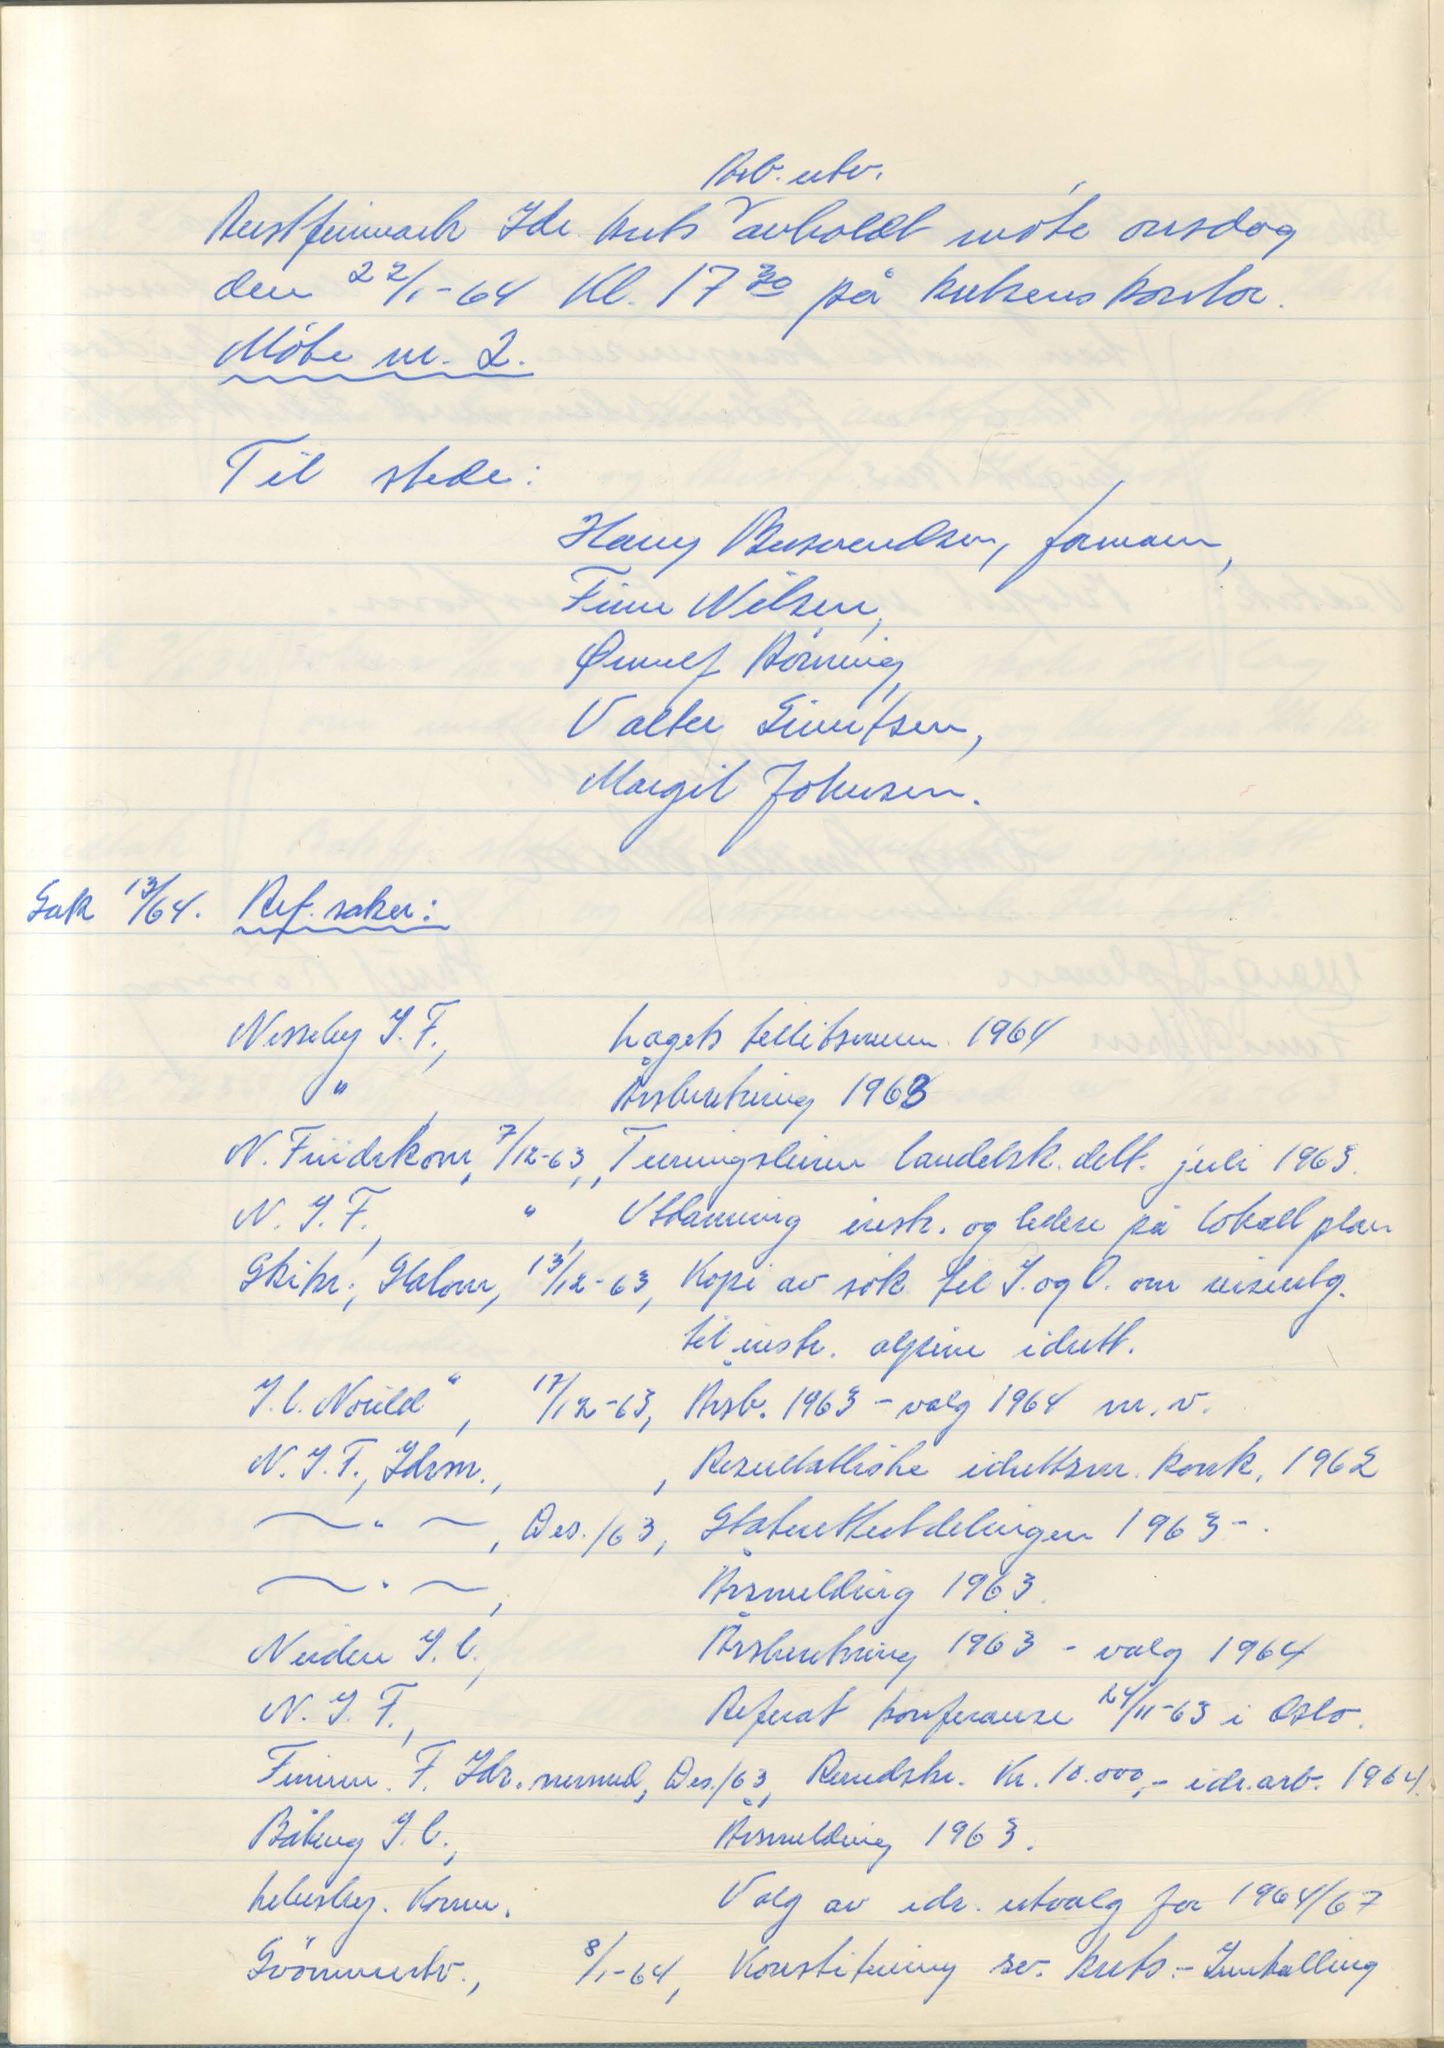 Arb. utv.
Austfinnmark Idr. krets avholdt møte onsdag
den 22/1-64 kl. 17 30 på kretsens kontor.
Møte nr. 2.
Til stede:
Harry Bernendsen, formann,
Finn Nilsen,
Ørnulf Hörning,
Valter Gerritsen,
Margit Johnsen.
Sak 13/64. Ref. saker:
Nesseby I. F., Lagets tillitsmenn 1964
" , Årsberetning 1963
N. Friidr.kom., 7/12-63, Treningsleiren landslk. delt. juli 1963.
N. I. F., " , Utdanning instr. og ledere på lokalt plan
Skikr., Slalom, 13/12-63, Kopi av søk. til S. og U. om
til instr. alpine idrett.
I.L. Nordld", 17/12-63, Årsb. 1963 - valg 1964 m. v.
N. I. F., Idrm., , Resultatliste idrettsm. konk. 1962
— " — , Des./63, Statuettutdelingen 1963 -.
— " — , Årsmelding 1963.
Neiden I. L., Årsberetning 1963 - valg 1964
N. I. F., Referat konferanse 24/11-63 i Oslo.
Finnm. F. Idr. nemnd, Des./63, Rundskr. Kr. 10.000,- idr.arb. 1964.
Båtsry I. L., Årsmelding 1963.
Lebesby. Komm. Valg av idr. utvalg for 1964/67
Svömmeutv., 8/1-64, Konstituering sv. krets. - Innkalling